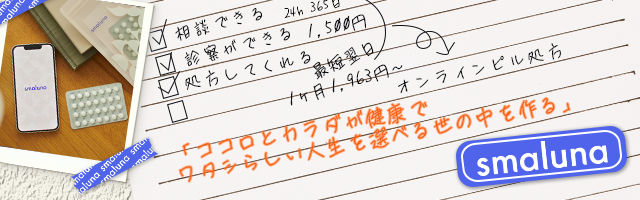 smaluna
smaluna
相談できる 24h 365日
診察ができる 1,500円
処方してくれる 最短翌日
1ヶ月1,963円〜
オンラインピル処方
「ココロとカラダが健康で
ワタシらしい人生を選べる世の中を作る」
smaluna
smaluna smaluna
smaluna smaluna